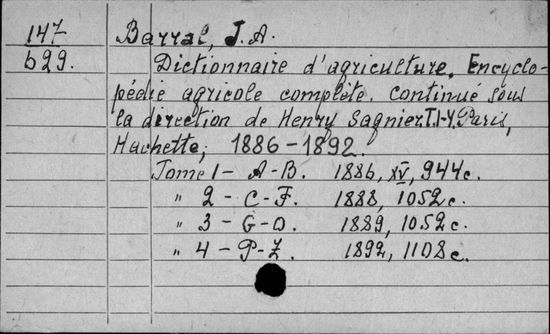 147
629.
Barral, J. A.
Dictionnaire d'agriculture. Encyclo-
pédie agricole complète. continué sous
la direction de Henry Sagnier T.1-4. Paris,
Hachette, 1886-1892.
Tome 1 - A-B. 1886, XV, 944 c.
" 2 - C-F. 1888, 1052 c.
" 3 - G-O. 1889, 1052 c.
" 4 - P-Z. 1892, 1108 c.